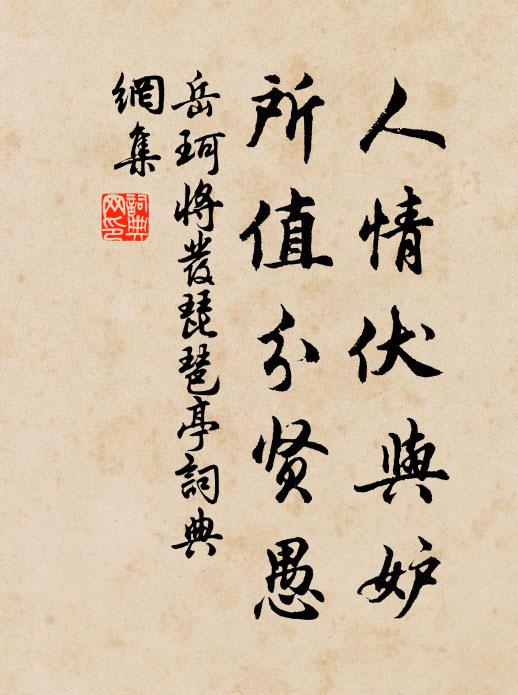 人情伏與妒
所值分贤愚
岳珂將發琵琶亭詞典
網集
詞典網印